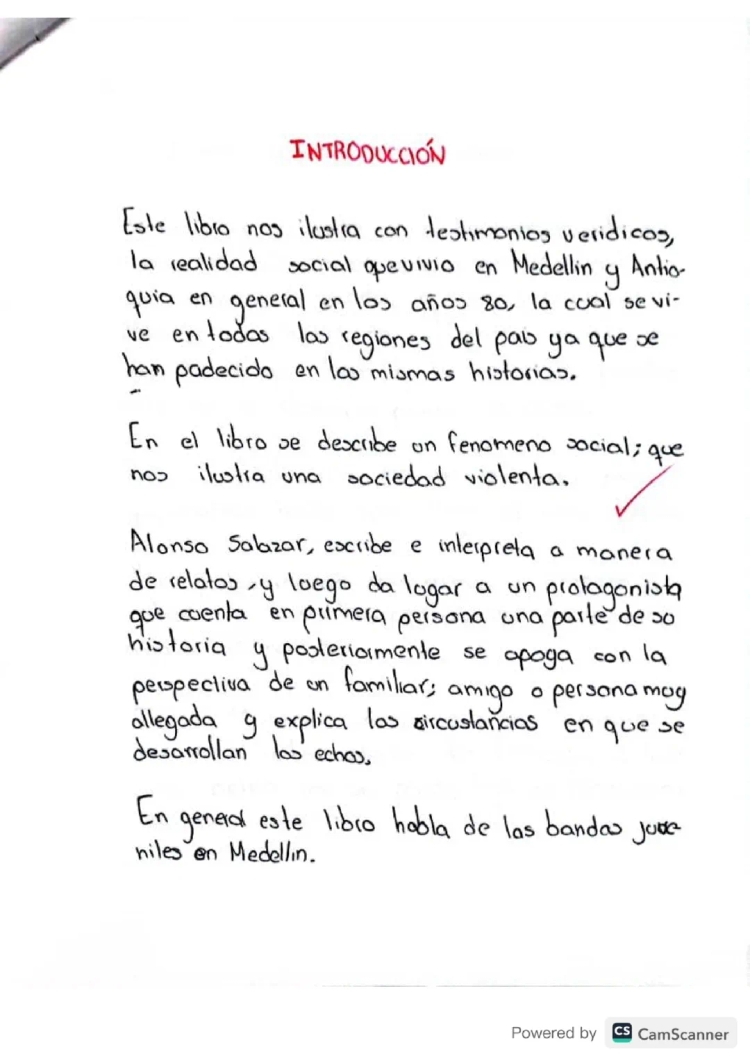 INTRODUCCIÓN
Este libro nos ilustra con testimonios veridicos,
la realidad social que vivio en Medellin y Antio-
quia en general en los años 80, la cual se vi-
ve en todas las regiones del pais ya que se
han padecido en las mismas historias.
En el libro se describe un fenomeno social; que
nos ilustra una sociedad violenta.
Alonso Salazar, escribe e interpreta a manera
de relatos, y luego da lugar a un protagonista
que cuenta en primera persona una parte de su
historia y posteriormente se apoga con la
perspectiva de un familiar; amigo o persona muy
allegada y explica las circustancias en que se
desarrollan los echos.
En general este libro habla de las bandas juve-
niles en Medellin.
Powered by CS CamScanner